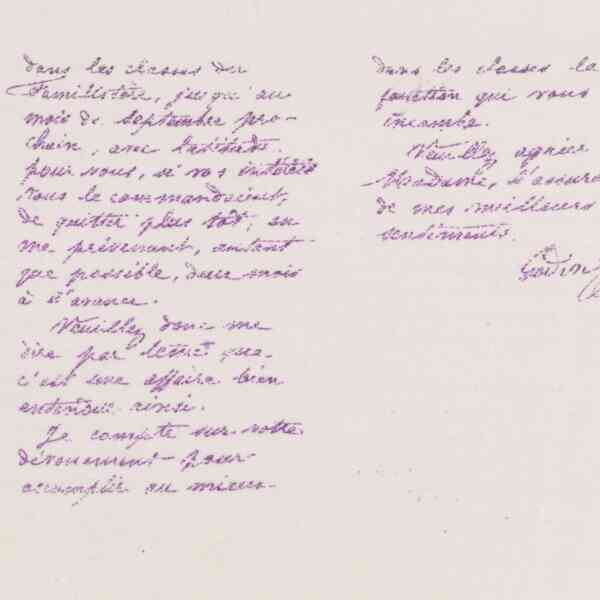 dans les classes du
Familistère, jusqu'au
mois de septembre pro-
chain, avec latitude,
pour vous, si vos intérêts
vous le commandaient,
de quitter plus tôt, en
me prévenant, autant
que possible, deux mois
à l'avance.
Veuillez donc me
dire par lettre que
c'est une affaire bien
entendue ainsi.
Je compte sur votre
dévouement pour
accomplir au mieux
dans les classes la
fonction qui vous
incombe.
Veuillez agréer
Madame, l'assura
de mes meilleurs
sentiments.
Godin